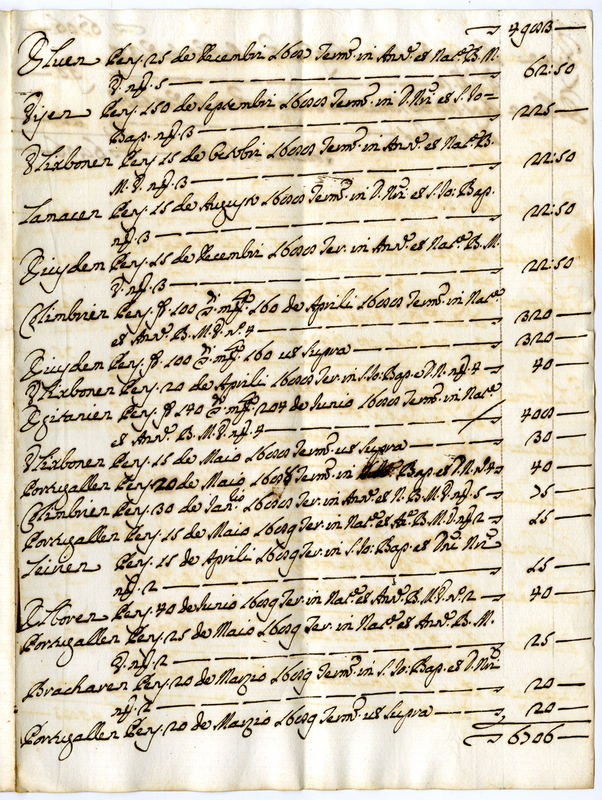 Eluen Pens. 25 de Decembri 1688 Term. in Ann.e et Nat.e B. M.
V. nps. 5 — 62:50
Visen Pens. 150 de Septembri 1688 Term. in D. Nri et S. Jo=
Bap. nps. 3 — 225 —
Vlixbonen Pens. 15 de Octobri 1688 Term. in Ann.e et Nat.e B.
M. V. nps. 3 — 22:50
Lamacen Pens. 15 de Augusto 1688 Term. in D. Nri et S. Jo: Bap.
nps. 3 — 22:50
Eiusdem Pens. 15 de Decembri 1688 Ter. in Ann.e et Nat.e B. M.
V. nps. 3 — 22:50
Colimbrien Pens. 100 160 de Aprili 1688 Term. in Nat.e
et Ann.e B. M. V. n.s 4 — 320 —
Eiusdem Pens. 100 160 ut supra — 320 —
Vlixbonen Pens. 20 de Aprili 1688 Ter. in S. Jo: Bap. e D. N. nps. 4 — 40 —
Egitanien Pens. 140 204 de Junio 1688 Term. in Nat.e
et Ann.e B. M. V. nps. 4 — 408 —
Vlixbonen Pens. 15 de Maio 1688 Term. ut supra — 30 —
Portugallen Pens. 20 de Maio 1688 Term. in Bap. et D. N. — 40 —
Colimbrien Pens. 30 de Jan.io 1688 Ter. in Ann.e et N. B. M. V. nps. 5 — 75 —
Portugallen Pens. 15 de Maio 1689 Ter. in Nat.e et An.e B. M. V. nps. 2 — 15 —
Leiren Pens. 15 de Aprili 1689 Ter. in S. Jo: Bap. et Dni Nri
nps. 2 — 15 —
Elboren Pens. 40 de Junio 1689 Ter. in Nat.e et Ann.e B. M. V. n.s 2 — 40 —
Portugallen Pens. 25 de Maio 1689 Ter. in Nat.e et Ann.e B. M.
V. nps. 2 — 25 —
Bracharen Pens. 20 de Marzio 1689 Term. in S. Jo: Bap. et D. Nri
nps. 2 — 20 —
Portugallen Pens. 20 de Marzio 1689 Term. ut supra — 20 —
6706 —